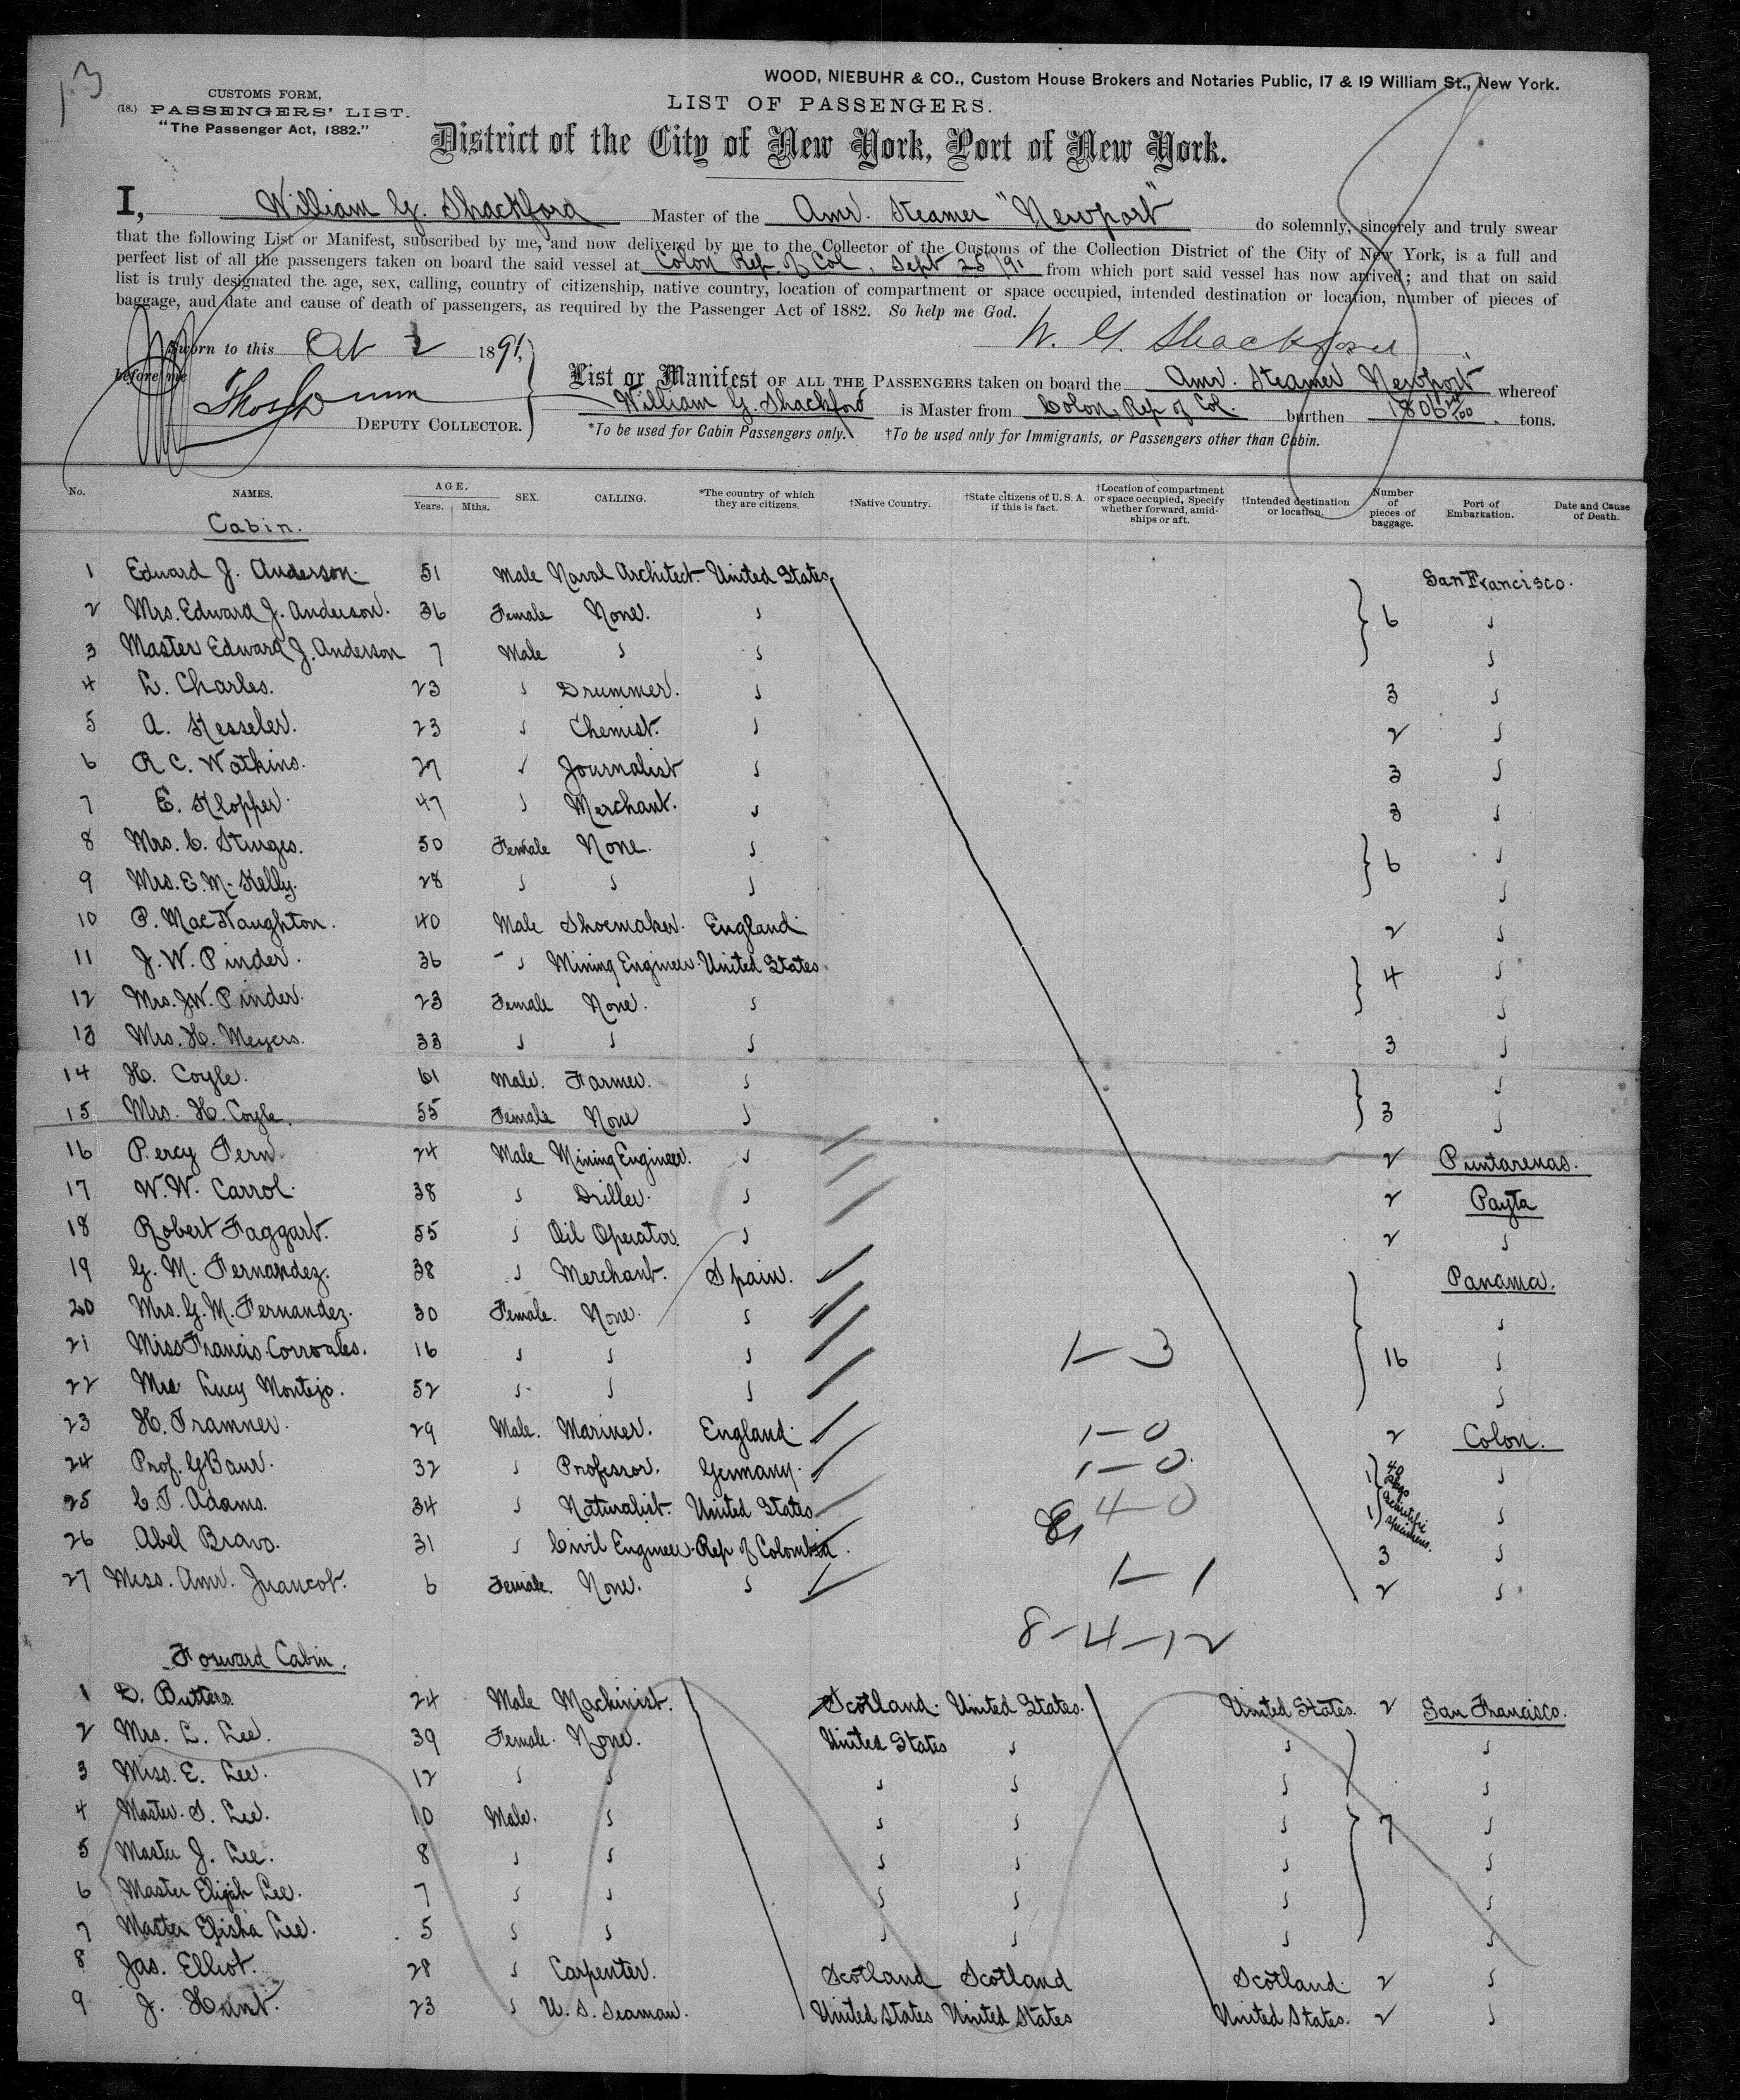 13
WOOD, NIEBUHR & CO., Custom House Brokers and Notaries Public, 17 & 19 William St., New York.
CUSTOMS FORM,
(18.) PASSENGERS' LIST.
"The Passenger Act, 1882."
LIST OF PASSENGERS.
District of the City of New York, Port of New York.
I, William G. Shackford Master of the Amr. Steamer "Newport" do solemnly, sincerely and truly swear
that the following List or Manifest, subscribed by me, and now delivered by me to the Collector of the Customs of the Collection District of the City of New York, is a full and
perfect list of all the passengers taken on board the said vessel at Colon Rep. of Col, Sept 25/91 from which port said vessel has now arrived; and that on said
list is truly designated the age, sex, calling, country of citizenship, native country, location of compartment or space occupied, intended destination or location, number of pieces of
baggage, and date and cause of death of passengers, as required by the Passenger Act of 1882. So help me God.
W. G. Shackford
Sworn to this Oct 2 1891,
before me
DEPUTY COLLECTOR.
List or Manifest OF ALL THE PASSENGERS taken on board the Amr. Steamer Newport" whereof
William G. Shackford is Master from Colon, Rep of Col. burthen 1806 tons.
*To be used for Cabin Passengers only. †To be used only for Immigrants, or Passengers other than Cabin.
No. NAMES. AGE. Years. Mths. SEX. CALLING. *The country of which they are citizens. †Native Country. †State citizens of U. S. A. if this is fact. †Location of compartment or space occupied, Specify whether forward, amidships or aft. †Intended destination or location. Number of pieces of baggage. Port of Embarkation. Date and Cause of Death.
Cabin.
1 Edward J. Anderson. 51 Male Naval Architect. United States. San Francisco.
2 Mrs. Edward J. Anderson. 36 Female None. " 6 "
3 Master Edward J. Anderson 7 Male " " "
4 L. Charles. 23 " Drummer. " 3 "
5 A. Kesseler. 23 " Chemist. " 2 "
6 R C. Watkins. 27 " Journalist " 3 "
7 E. Klopper. 47 " Merchant. " 3 "
8 Mrs. C. Sturges. 50 Female None. " 6 "
9 Mrs. E. M. Kelly. 28 " " " "
10 P. MacNaughton. 40 Male Shoemaker. England 2 "
11 J. W. Pinder. 36 " Mining Engineer. United States 4 "
12 Mrs. J.W. Pinder. 23 Female None. " "
13 Mrs. H. Meyers. 33 " " " 3 "
14 H. Coyle. 61 Male. Farmer. " "
15 Mrs. H. Coyle. 55 Female None " 3 "
16 Percy Fern. 24 Male Mining Engineer. " 2 Puntarenas.
17 W. W. Carrol. 38 " Driller. " 2 Payta
18 Robert Faggart. 55 " Oil Operator. " 2 "
19 G. M. Fernandez. 38 " Merchant. Spain. Panama.
20 Mrs. G. M. Fernandez. 30 Female. None. " "
21 Miss Francis Corroales. 16 " " " 1-3 16 "
22 Mrs Lucy Montejo. 52 " " " "
23 H. Tramner. 29 Male. Mariner. England. 1-0 2 Colon.
24 Prof. G Baur. 32 " Professor. Germany. 1-0. 1 "
25 C. F. Adams. 34 " Naturalist. United States 4-0 1 "
40 pkgs scientific specimens.
26 Abel Bravo. 31 " Civil Engineer. Rep of Colombia. 3 "
27 Miss. Amr. Juancot. 6 Female. None. " 1-1 2 "
8-4-12
Forward Cabin.
1 D. Butters. 24 Male Machinist. Scotland. United States. United States. 2 San Francisco.
2 Mrs. L. Lee. 39 Female. None. United States " " "
3 Miss. E. Lee. 12 " " " " " "
4 Master. S. Lee. 10 Male. " " " " 7 "
5 Master J. Lee. 8 " " " " " "
6 Master Elijah Lee. 7 " " " " " "
7 Master Elisha Lee. 5 " " " " " "
8 Jas. Elliot. 28 " Carpenter. Scotland Scotland Scotland. 2 "
9 J. Hunt. 23 " U. S. Seaman. United States United States United States. 2 "